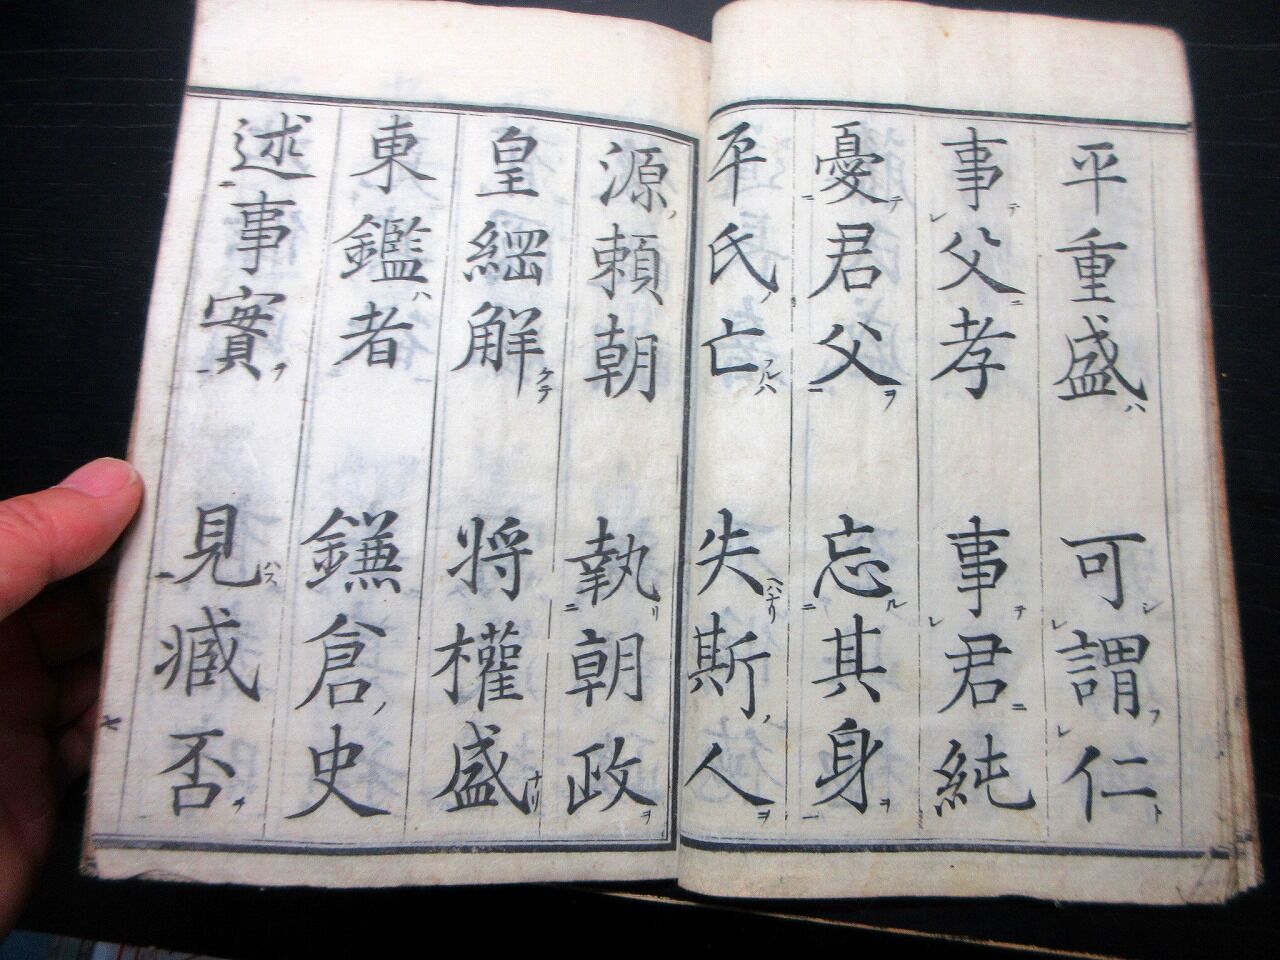 平重盛ハ 可シレ謂フレ仁ト
事テレ父ニ孝 事テレ君ニ純
憂テ二君父ヲ二 忘ル二其身ヲ一
平氏ノ亡フルハ 失ヘハナリ斯ノ人ヲ
源ノ頼朝 執リ二朝政ヲ
皇綱解ケテ 将權盛ナリ
東鑑ハ者 鎌倉ノ史
述一事實ヲ一 見ハス一臧否ヲ
七